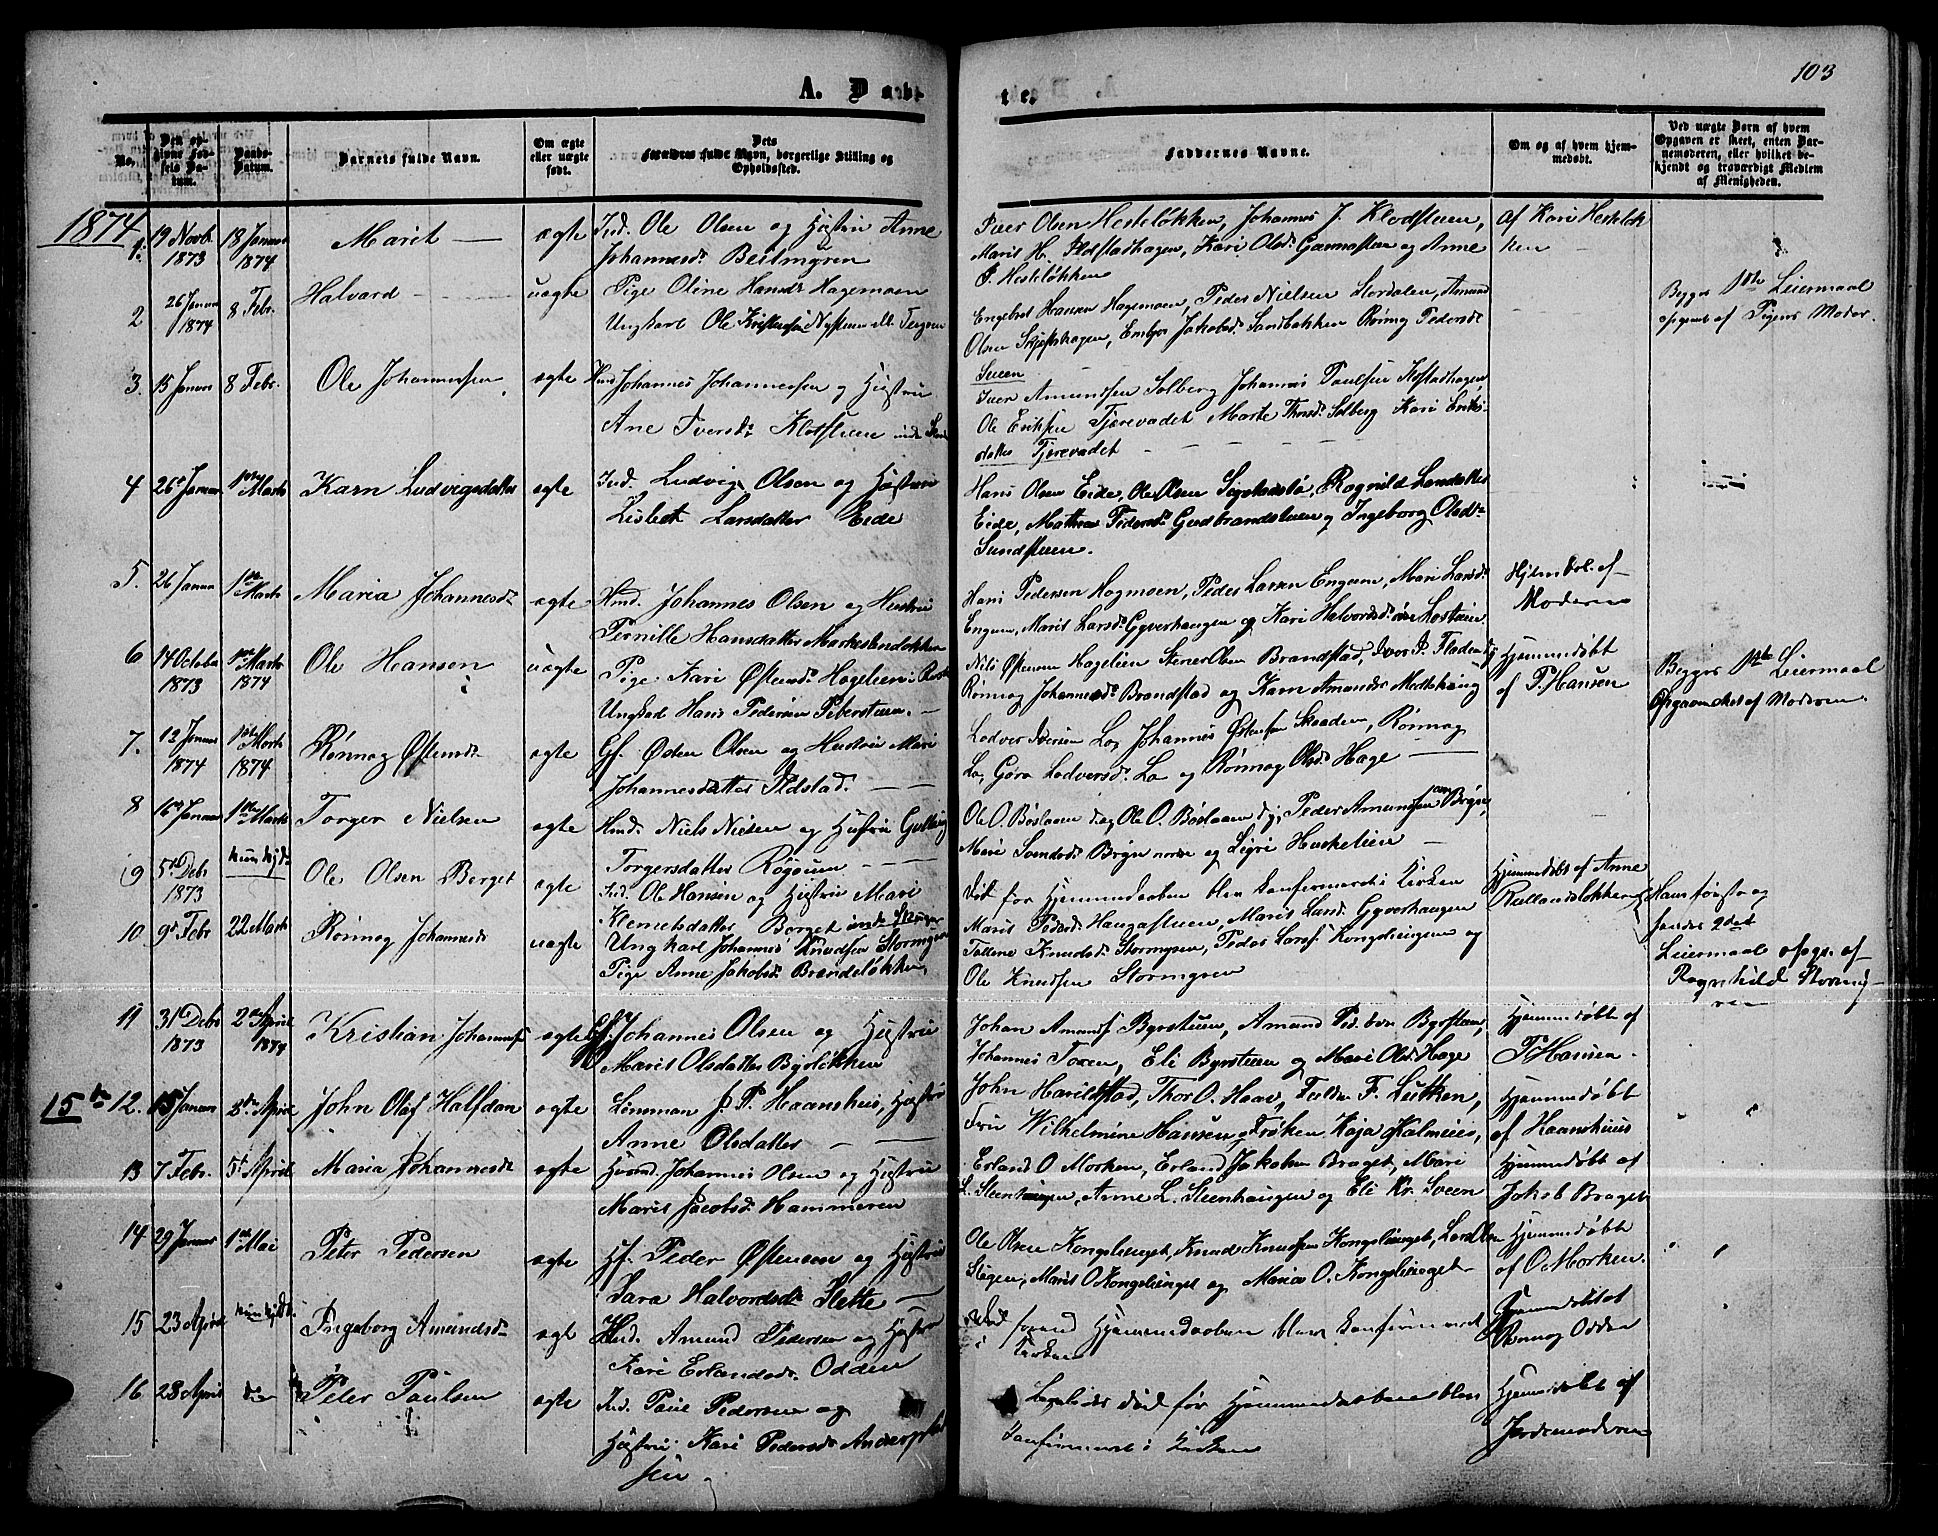 103
A. Døbte.
No.
Den opgivne Fødsels Datum.
Daabs-Datum.
Barnets fulde Navn.
Om ægte eller uægte født.
Dets Forældres fulde Navn, borgerlige Stilling og Opholdssted.
Faddernes Navne.
Om og af hvem hjemmedøbt.
Ved uægte Born af hvem Opgaven er skeet, enten Barnemoderen, eller hvilket bekjendt og troværdigt Medlem af Menigheden.
1874
1. 19 Novb. 1873 18 Januar 1874 Marit — ægte Ind. Ole Olsen og Hustru Anne
Johannesd. Beitmyren
Peer Olsen Hesteløkken, Johannes J. Klodstuen,
Marit H. Ildstadhagen, Kari Olsd. og Anne
P. Hesteløkken
Af Kari Hesteløk
ken —
2 26 Januar 1874 8 Febr. Halvard — uægte Pige Oline Hansd. Hagemoen
Ungkarl Ole Kristensen
Engebret Hansen Hagemoen, Peder Nielsen Stordalen, Amund
Olsen, Embjør Jakobsd. Sandbakken Rønnog Pedersd.
Sveen
Begges 1ste Leiermaal
opgivet af Pigens Moder.
3. 15 Januar 8 Febr. Ole Johannessen ægte Hmd Johannes Johannessen og Hustru
Ane Iversd. Klodstuen
Iver Amundsen Solberg Johannes Paulsen
Ole Eriksen Tjerevadet Marte Solberg Kari Eriks
datter Tjerevadet —
4 26 Januar 1ste Marts Karn Ludvigsdatter ægte Ind. Ludvig Olsen og Hustru
Lisbet Larsdatter Eide
Hans Olsen Eide, Ole Olsen, Ragnild Larsdatter
Eide, Mathea Pedersd. Gudbrandstuen og Ingeborg Olsd.
Sundstuen.
5. 26 Januar 1ste Marts Maria Johannesd. ægte Hmd. Johannes Olsen og Hustru
Pernille Hansdatter
Hans Pedersen Hagmoen, Peder Larsen Engum, Mari Larsd.
Engum, Marit Larsd. Gyverhaugen og Kari Halvorsd.
Hjemdøbt af
Moderen
6 14 October 1873 1ste Marts 1874 Ole Hansen uægte Pige Kari Østensd. Hagelien
Ungkarl Hans Pedersen
Nils Østensen Hagelien Stener Olsen Brandstad, Iver P. Fladen og
Rønnog Johannesd. Brandstad og Karn Amundsd.
Hjemmedøbt
af P. Hansen
Begges 1ste Leiermaal
af Moderen
7. 12 Januar 1874 1ste Marts 1874 Rønnog Østensd. ægte Gf. Østen Olsen og Hustru Mari
Johannesdatter Ildstad. — —
Lodver Iversen Lo, Johannes Østensen Skaaden, Rønnog
Lo, Gøra Lodversd. Lo og Rønnog Olsd. Hage —
8 16 Januar 1ste Marts Torger Nielsen ægte Hmd. Niels Nielsen og Hustru
Torgersdatter
Ole O. Bøslaaen og Ole O. Bøslaaen, Peder Amundsen
Mari og Sigri Haskelien —
9 5 Debr 1873 Ole Olsen Berget ægte Ind. Ole Hansen og Hustru Mari
Klemetsdatter Berget
Død før Hjemmedaaben blev konfirmeret i Kirken
Hjemmedøbt af Anne
Rullandsløkken
10 9 Febr 22 Marts Rønnog Johannesd uægte Ungkarl Johannes Knudsen Stormyren
Pige Anne Jakobsd. Brandeløkken
Marit Pedersd. Haugastuen, Marit Larsd. Gyverhaugen
Knudsd. Stormyren, Peder Larsen Kongslungen og
Ole Knudsen Stormyren
Hans første og
hendes 2det
Leiermaal opgi. af
Ragnhild Stormy
ren
11 31 Debr 1873 2den April 1874 Kristian Johannes. ægte Johannes Olsen og Hustru
Marit Olsdatter Byrløkken
Johan Amunds. Byrstuen, Amund Byrstuen,
Johannes, Eli Byrstuen og Mari Olsd. Hage
Hjemmedøbt af
P. Hansen.
15de 12. 15 Januar April John Olaf Halfdan ægte Lensman J. P. Haanshus, Hustru
Anne Olsdatter —
John Harildstad, Thor O. Haav, F. Lütken,
Fru Wilhelmine Hansen, Frøken Kaja
Hjemmedøbt
af Haanshuus
13 7 Febr. 5te April Maria Johannesd. ægte Johannes Olsen og Hustru
Marit Jacobsd. Hammeren
Erland O. Morken, Erland Jakobsen Braget, Mari
L. Steenhaugen, Anne L. Steenhaugen og Eli Kr. Sveen
Hjemmedøbt af
Jakob Braget
14 29 Januar 1ste Mai Peter Pedersen ægte Hf. Peder Østensen og Hustru
Sara Halvordsd. Slette —
Ole Olsen Kongslunget, Knud Knudsen Kongslunget,
Marit O. Kongslunget og Maria O. Kongslunget
Hjemmedøbt
af O. Morken.
15 23 April Ingeborg Amundsd. ægte Amund Pedersen og Hustru
Kari Erlandsd. Odden
Død forend Hjemmedaaben blev konfirmeret
i Kirken
Hjemmedøbt af
Rønnog Odden
16 28 April Peter Paulsen ægte Ind. Paul Pedersen og
Hustru Kari Pedersd.
død før Hjemmedaaben blev
Konfirmeret i Kirken
Hjemmedøbt af
Jordemoderen